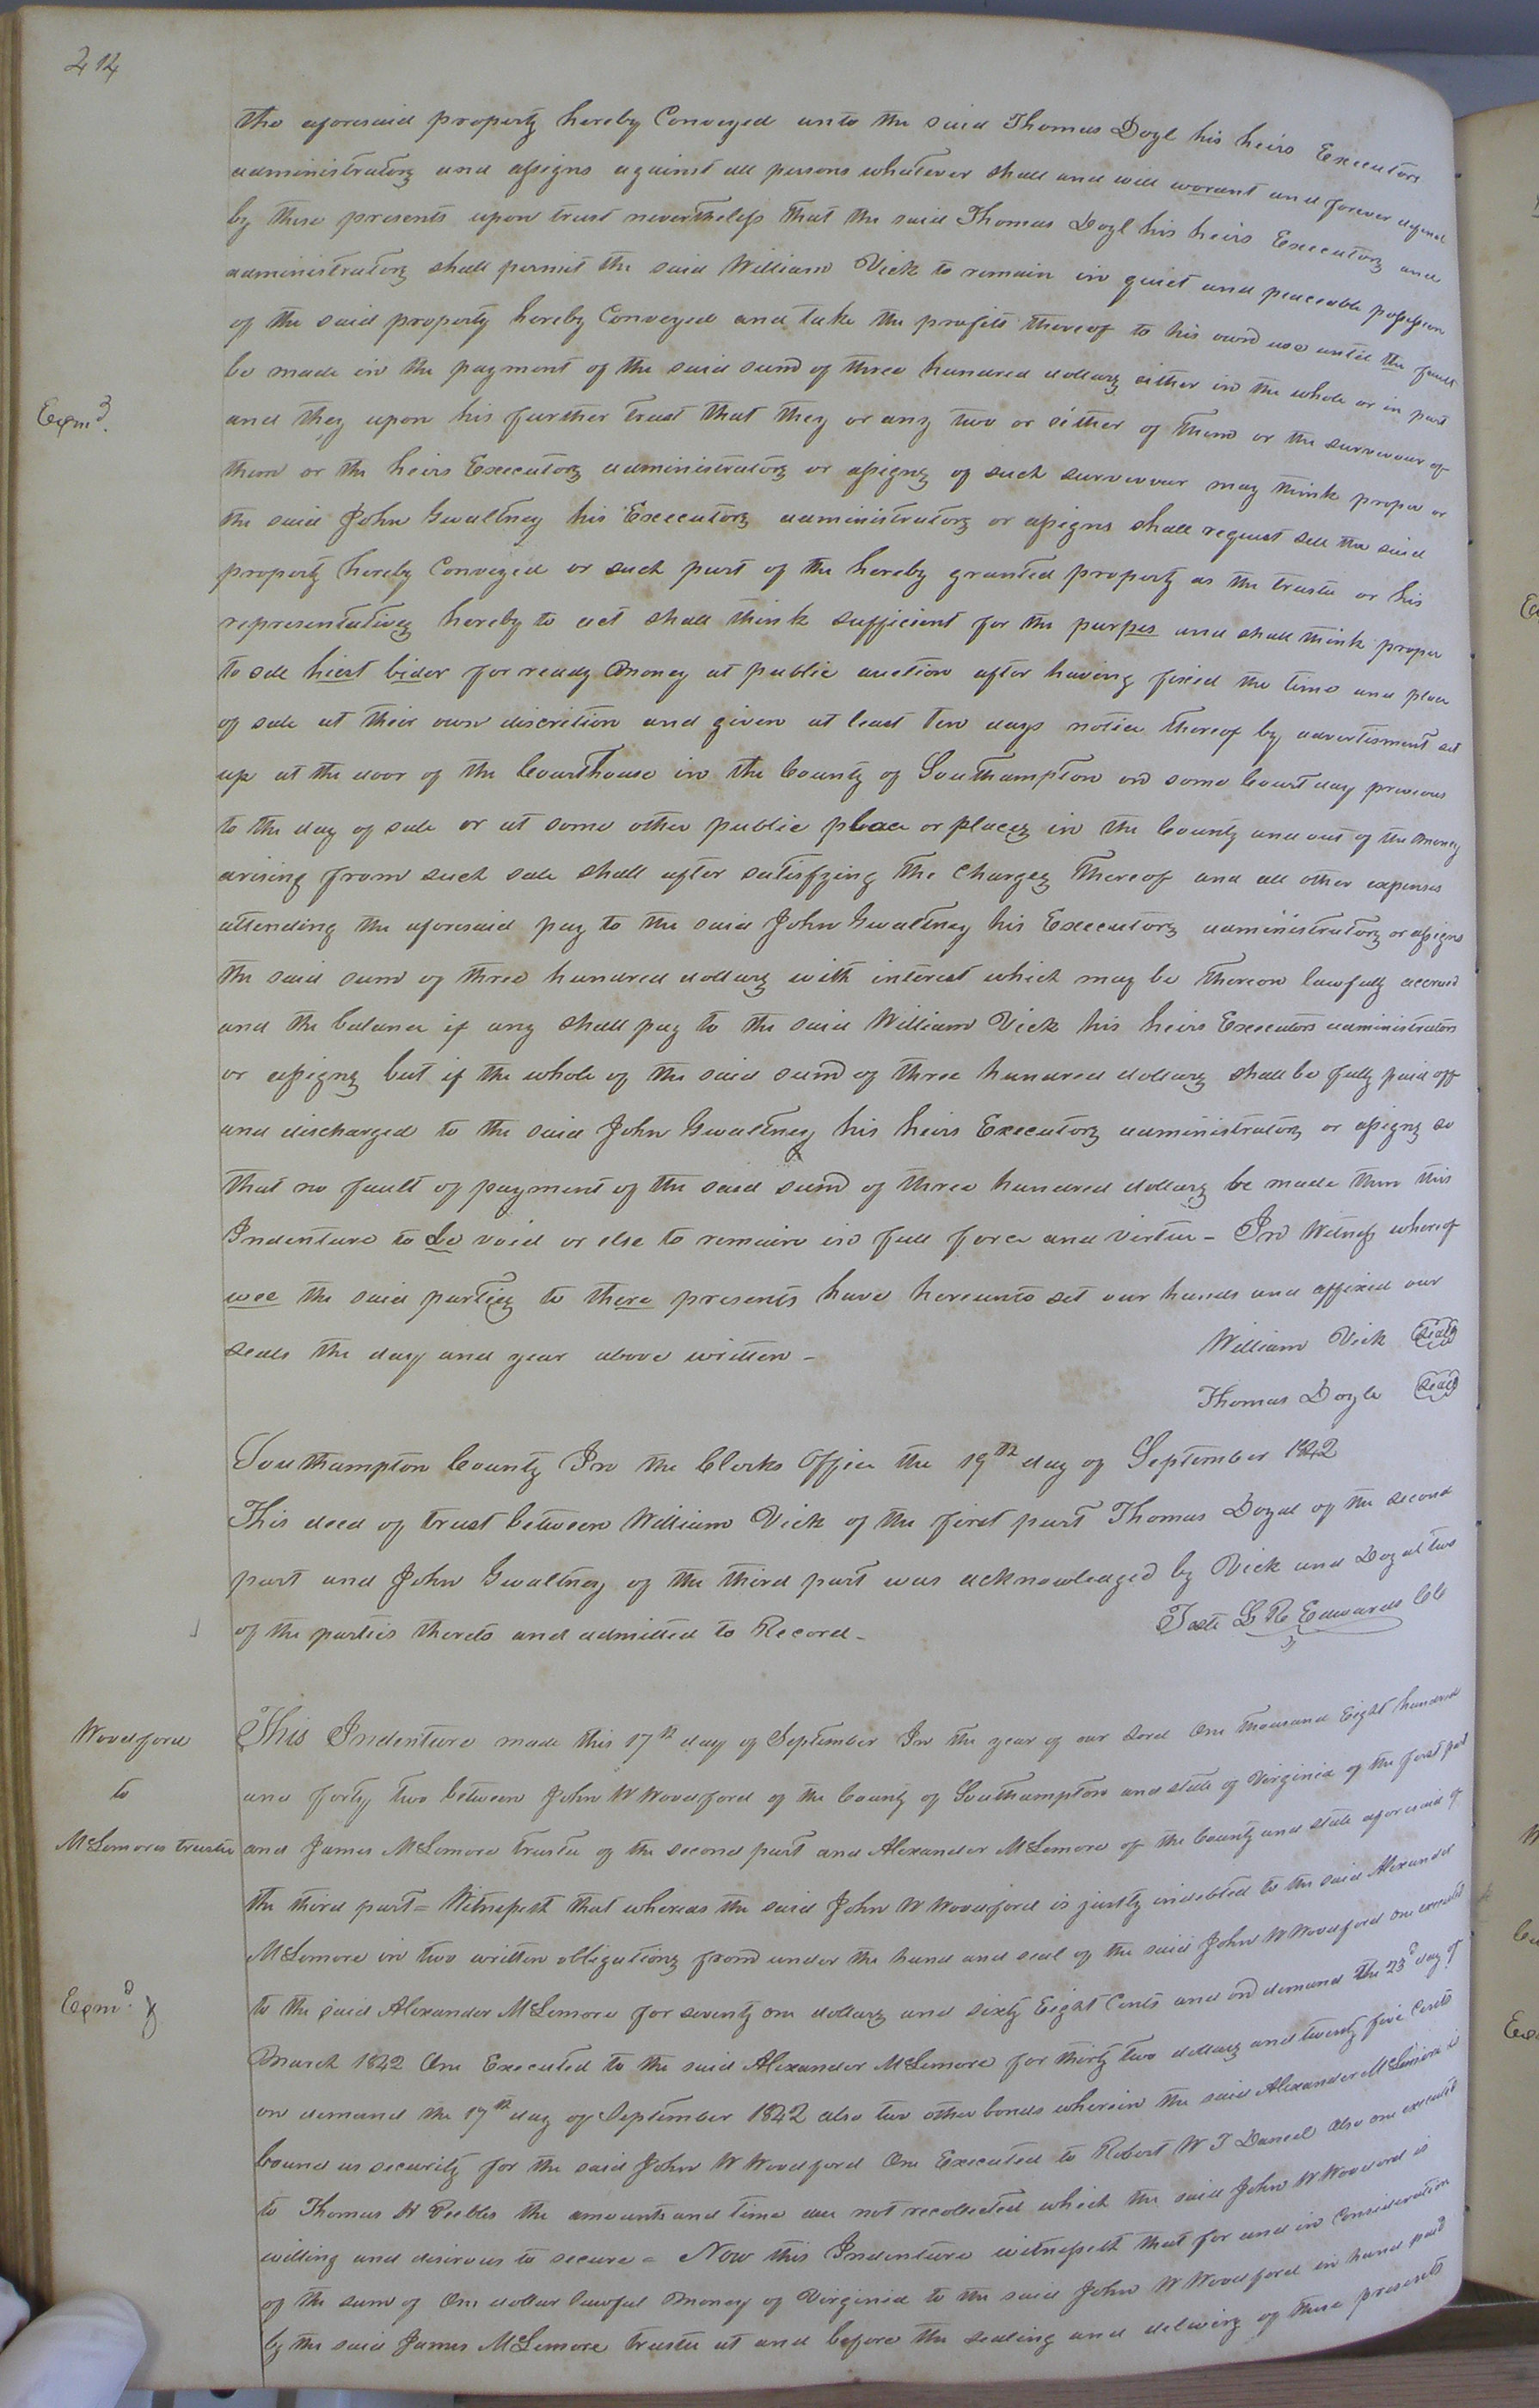 212
the aforesaid property hereby Conveyed unto the said Thomas Doyl his heirs Executors
administrators and assigns against all persons whatever shall and will worant and forever defend
by these presents upon trust nevertheless that the said Thomas Doyl his heirs Executors and
administrators shall permit the said William Vick to remain in quiet and peaceable possession
of the said property hereby Conveyed and take the profits thereof to his own use until the fault
be made in the payment of the said sum of three hundred dollars either in the whole or in part
Exmd.
and they upon his further trust that they or any two or either of them or the survivour of
them or the heirs Executors administrators or assigns of such survivour may think proper or
the said John Gwaltney his Executors administrators or assigns shall request sell the said
property hereby Conveyed or such part of the hereby granted property as the trustee or his
representatives hereby to act shall think sufficient for the purpes and shall think proper
to sell hiest bider for ready money at public auction after having fixed the time and place
of sale at their own discretion and given at least ten days notice thereof by advertisment set
up at the door of the Courthouse in the County of Southampton on some Court day previous
to the day of sale or at some other public place or places in the County and out of the money
arising from such sale shall after satisfying the charges thereof and all other expenses
attending the aforesaid pay to the said John Gwaltney his Executors administrators or assigns
the said sum of three hundred dollars with interest which may be thereon lawfully accrued
and the balance if any shall pay to the said William Vick his heirs Executors administrators
or assigns but if the whole of the said sum of three hundred dollars shall be fully paid off
and discharged to the said John Gwaltney his heirs Executors administrators or assigns so
that no fault of payment of the said sum of three hundred dollars be made then this
Indenture to be void or else to remain in full force and virtue - In Witness whereof
wee the said parties to there presents have hereunto set our hands and affixed our
seals the day and year above written -
William Vick Seal
Thomas Doyle Seal
Southampton County In the Clerks Office the 19th day of September 1842
This deed of trust between William Vick of the first part Thomas Doyal of the second
part and John Gwaltney of the third part was acknowledged by Vick and Doyal two
of the parties thereto and admitted to Record -
Teste L R Edwards CC
Woodford
to
McLemores trustee
This Indenture made this 17th day of September In the year of our Lord One thousand Eight hundred
and forty two between John W Woodford of the County of Southampton and state of Virginia of the first part
and James McLemore trustee of the second part and Alexander McLemore of the County and state aforesaid of
the third part = Witnesseth that whereas the said John W Woodford is justly indebted to the said Alexander
McLemore in two written obligations from under the hand and seal of the said John W Woodford One executed
Exmd.
to the said Alexander McLemore for seventy one dollars and sixty Eight Cents and on demand the 23d day of
March 1842 One Executed to the said Alexander McLemore for thirty two dollars and twenty five Cents
on demand the 17th day of September 1842 also two other bonds wherein the said Alexander McLemore is
bound as security for the said John W Woodford One Executed to Robert W J Daniel Also one executed
to Thomas H Peebles the amounts and time due not recollected which the said John W Wooford is
willing and desirous to secure = Now this Indenture witnesseth that for and in Consideration
of the sum of One dollar lawful money of Virginia to the said John W Woodford in hand paid
by the said James McLemore trustee at and before the sealing and delivery of these presents